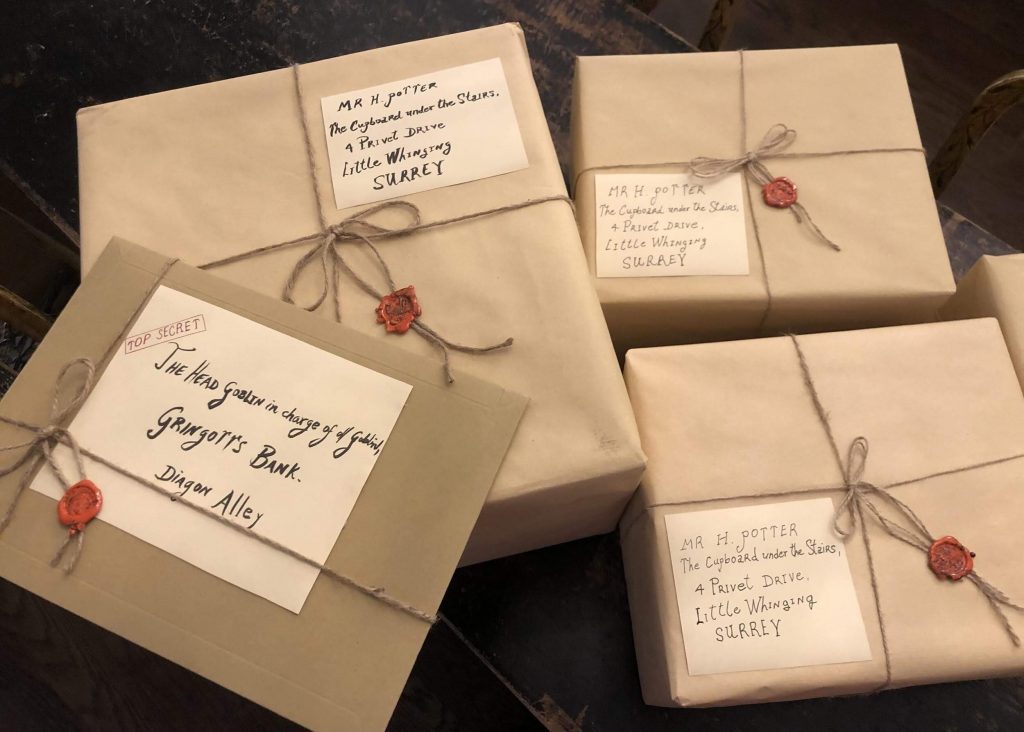 MR H. POTTER
The Cupboard under the Stairs,
4 PRIVET DRIVE
Little Whinging
SURREY
MR H. POTTER
The Cupboard under the Stairs,
4 PRIVET DRIVE,
Little Whinging
SURREY
TOP SECRET
THE HEAD GOBLIN in charge of all Goblins,
GRINGOTTS BANK.
DIAGON Alley
MR H. POTTER
The Cupboard under the Stairs,
4 PRIVET DRIVE,
Little Whinging
SURREY